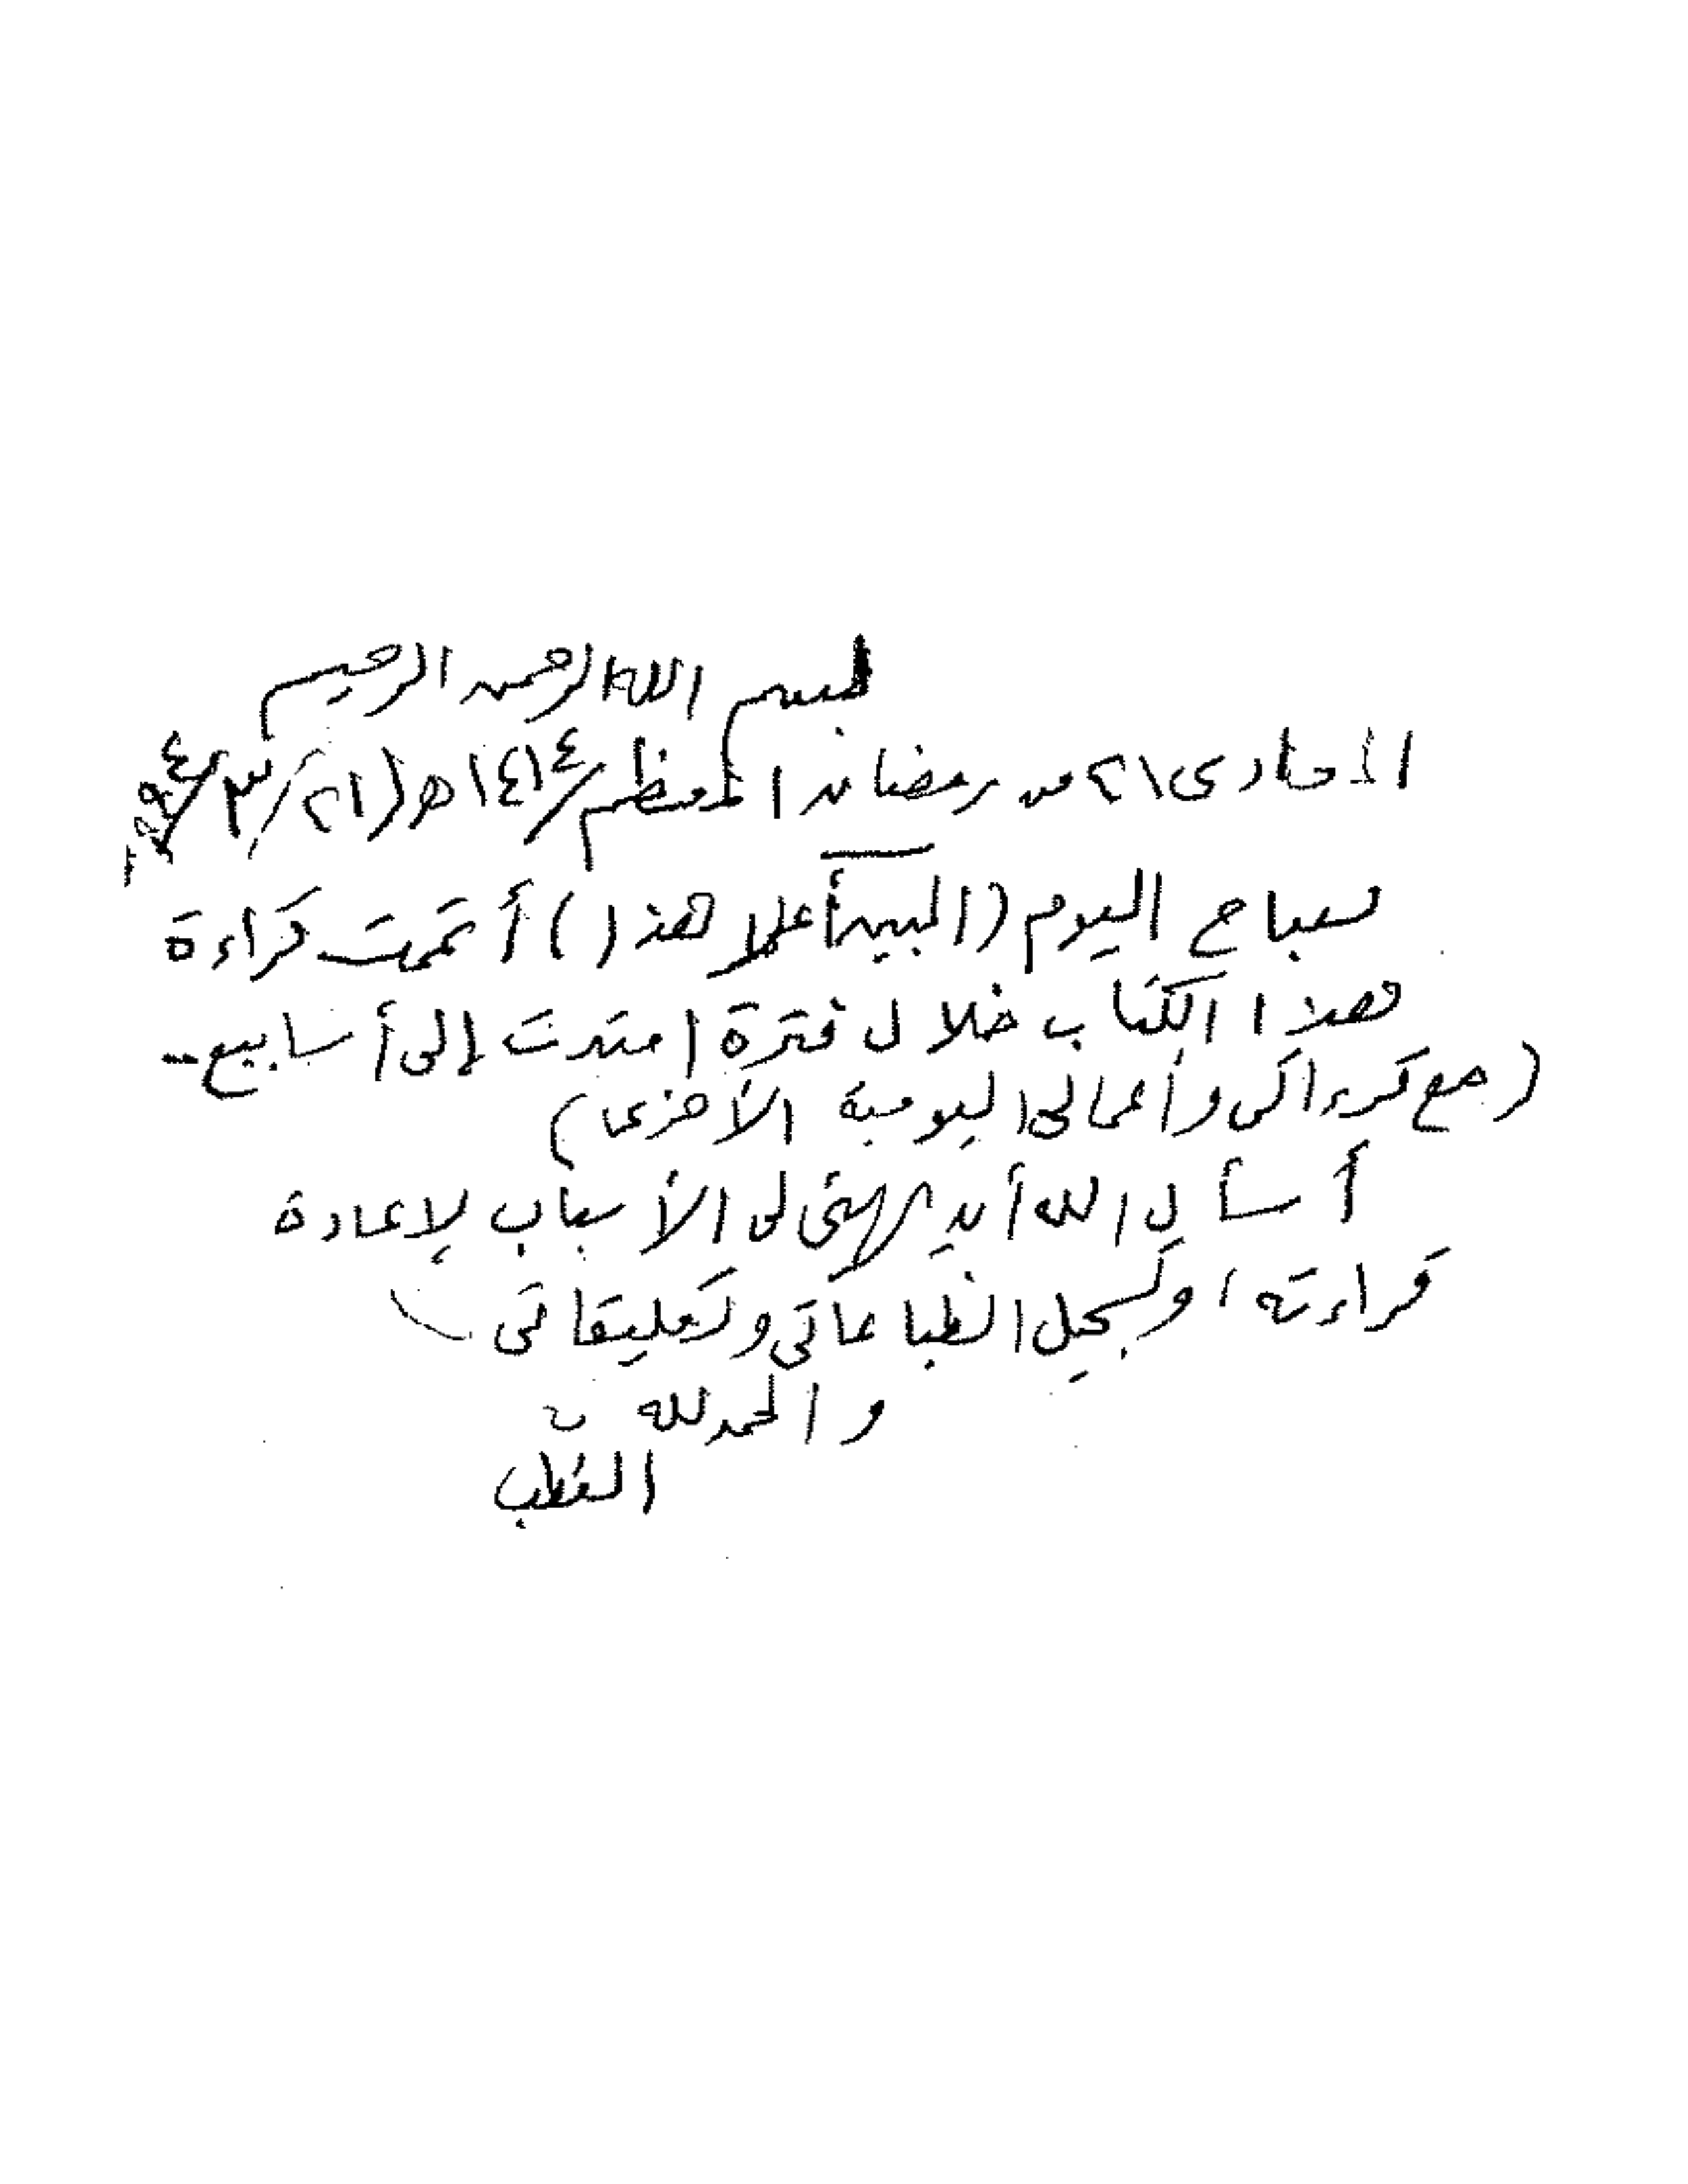 بسم الله الرحمن الرحيم
الحادى ٢١ من رمضان المعظم ١٤١٤ھ (٢١/٣/١٩٩٤م
صباح اليوم (المبين أعلا هذا) أتممت قراءة
هذا الكتاب خلال فترة امتدت إلى أسابيع -
(مع قرءاتى وأعمالى اليومية الأخرى)
أسأل الله أن يهئ لى الأسباب لإعادة
قراءته، وتسجيل انطباعاتى وتعليقاتى
والحمد لله
القطب